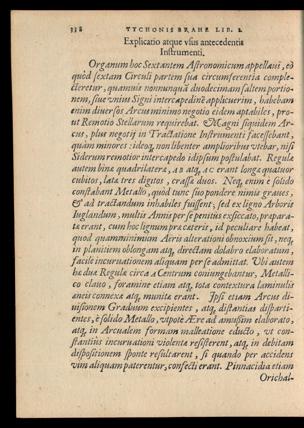 338 TYCHONIS BRAHE LIB. I.
Explicatio atque vsus antecedentis
Instrumenti.
Organum hoc Sextantem Astronomicum appellaui, eò
quòd sextam Circuli partem sua circumferentia comple-
cteretur, quamuis nonnunquā duodecimam saltem portio-
nem, siue vnius Signi intercapedinē applicuerim, habebam
enim diuersos Arcus minimo negotio eidem aptabiles, pro-
ut Remotio Stellarum requirebat. Magni siquidem Ar-
cus, plus negotij in Tractatione Instrumenti facessebant,
quàm minores: ideoq, non libenter amplioribus vtebar, nisi
Siderum remotior intercapedo idipsum postulabat. Regulæ
autem binæ quadrilateræ, a b atq, a c erant longæ quatuor
cubitos, latæ tres digitos, crassæ duos. Neq, enim è solido
constabant Metallo, quod tunc suo pondere nimis graues,
& ad tractandum inhabiles fuissent, sed ex ligno Arboris
Iuglandum, multis Annis per se penitùs exsiccato, prepara-
tæ erant, cum hoc lignum præ cæteris, id peculiare habeat,
quod quamminimum Aeris alterationi obnoxium sit, neq,
in planitiem oblongam atq, directam dolabro elaboratum,
facilè incuruationem aliquam per se admittat. Vbi autem
hæ duæ Regulæ circa a Centrum coniungebantur, Metalli-
co clauo, foramine etiam atq, tota contextura laminulis
æneis connexæ atq, munitæ erant. Ipsi etiam Arcus di-
uisionem Graduum excipientes, atq, distantias disparti-
entes, è solido Metallo, vtpotè Ære ad amussim elaborato,
atq, in Arcualem formam malleatione educto, vt con-
stantius incuruationi violentæ resisterent, atq, in debitam
dispositionem sponte resultarent, si quando per accidens
vim aliquam paterentur, confecti erant. Pinnacidia etiam
Orichal-